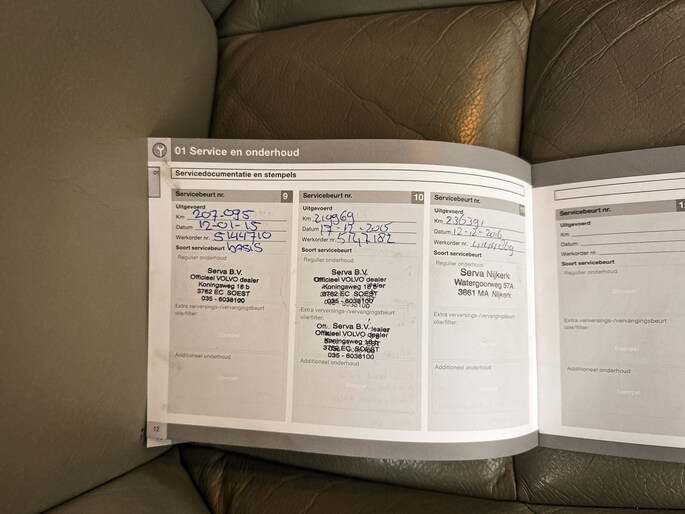 01 Service en onderhoud
Servicedocumentatie en stempels
Servicebeurt nr. 9
Uitgevoerd
Km 207.095
Datum 12-01-15
Werkorder nr. 5144710
Soort servicebeurt basis
Regulier onderhoud
Serva B.V.
Officieel VOLVO dealer
Koningsweg 18 b
3762 EC SOEST
035 - 6038100
Extra verversings-/vervangingsbeurt
olie/filter:
Additioneel onderhoud
12
Servicebeurt nr. 10
Uitgevoerd
Km 219969
Datum 17-12-2015
Werkorder nr. 5147182
Soort servicebeurt
Regulier onderhoud
Serva B.V.
Officieel VOLVO dealer
Koningsweg 18 b
3762 EC SOEST
035 - 6038100
Serva B.V.
Officieel VOLVO dealer
Koningsweg 18 b
3762 EC SOEST
035 - 6038100
Additioneel onderhoud
Servicebeurt nr.
Uitgevoerd
Km 236391
Datum 12-12-2016
Werkorder nr.
Soort servicebeurt
Regulier onderhoud
Serva Nijkerk
Watergoorweg 57A
3861 MA Nijkerk
Extra verversings-/vervangingsbeurt
olie/filter:
Additioneel onderhoud
Servicebeurt nr.
Uitgevoerd
Km
Datum
Werkorder nr.
Soort servicebeurt
Regulier onderhoud
Extra verversings-/vervangingsbeurt
olie/filter:
Additioneel onderhoud